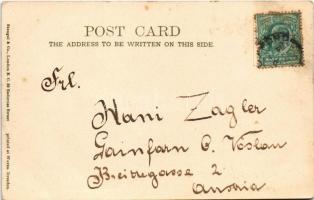 POST CARD
THE ADDRESS TO BE WRITTEN ON THIS SIDE.
Frl.
Nani Zagler
Gainfarn b. Vöslau
2
Austria
Stengel & Co., London E. C. 39 Redcross Street printed at Works Dresden.